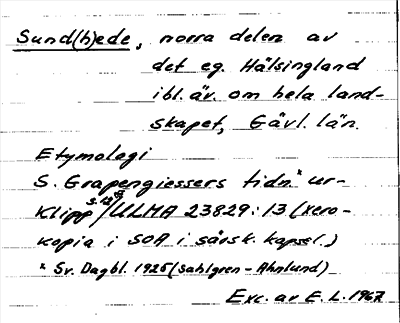 Sund(h)ede, norra delen av
det eg. Hälsingland
ibl. äv. om hela land-
skapet, Gävl. län.
Etymologi
S. Grapengiessers tidn.x ur-
klipp / ULMA 23829:13 (xero-
kopia i SOA i särsk. kapsel.)
x Sv. Dagbl. 1925 (Sahlgren - Ahnlund)
Exc. av E. L. 1967